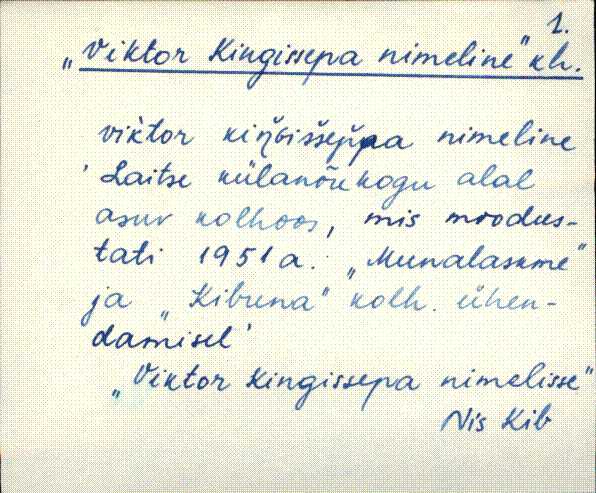 1.
„Viktor Kingissepa nimeline" kh.
viktor kiŋ̆Gišše͔p̆pa nimeline
'Laitse külanõukogu alal
asuv kolhoos, mis moodus-
tati 1951 a. „Munalaskme"
ja „Kibuna" kolh. ühen-
damisel'
„Viktor Kingissepa nimelisse"
Nis Kib